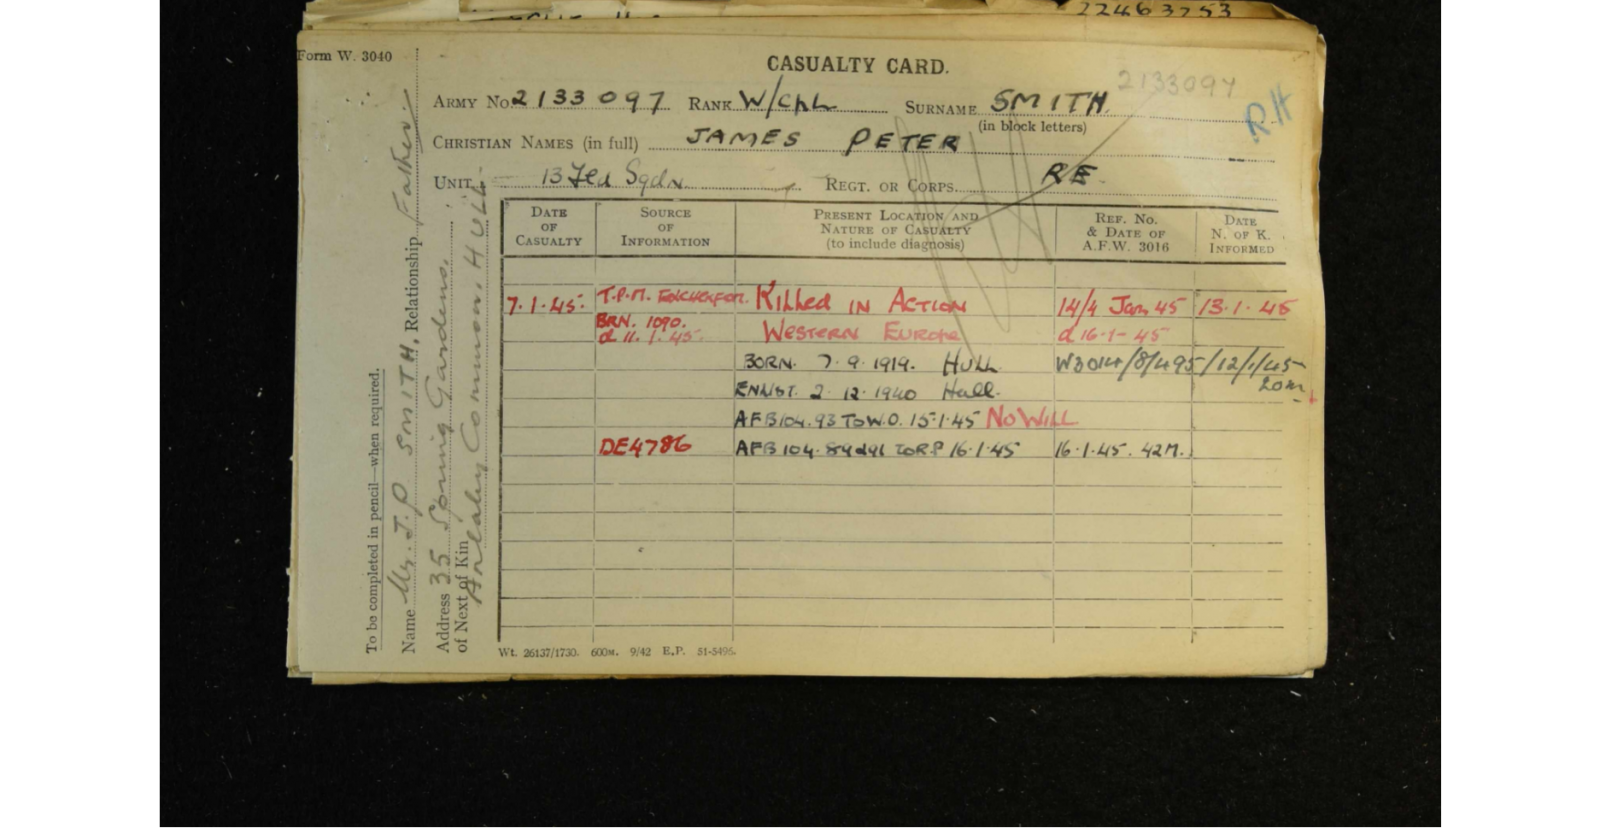 22463253
Form W. 3040
CASUALTY CARD.
2133097
ARMY No. 2133097 RANK W/CPL SURNAME SMITH
(in block letters)
RH
CHRISTIAN NAMES (in full) JAMES PETER
UNIT 13 Fld Sqdn REGT. OR CORPS. RE
DATE OF CASUALTY
SOURCE OF INFORMATION
PRESENT LOCATION AND NATURE OF CASUALTY (to include diagnosis)
REF. No. & DATE OF A.F.W. 3016
DATE N. OF K. INFORMED
7.1.45. T.P.M. Killed IN ACTION 14/4 Jan 45 13.1.45
BRN. 1090. WESTERN EUROPE d 16-1-45
d 11.1.45.
BORN. 7.9.1919. HULL W3014/8/495/12/1/45
ENLIST. 2.12.1940 Hull. 20m
AFB104.93 TO W.O. 15.1.45 NO WILL
DE4786 AFB104. TO RP 16.1.45 16.1.45. 42M.
Wt. 26137/1730. 600M. 9/42 E.P. 51-5496.
To be completed in pencil—when required.
Name Mr. J.P SMITH. Relationship Father
Address 35 Spring Gardens,
of Next of Kin Anlaby Common, HULL